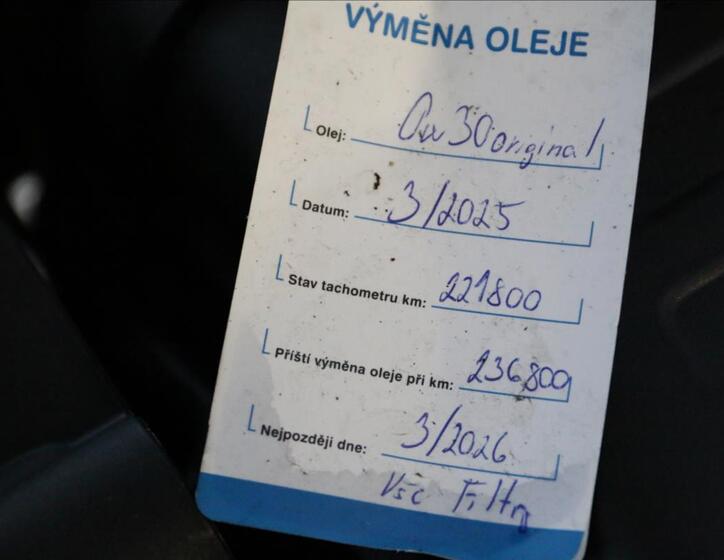 VÝMĚNA OLEJE
Olej: 0w30 original
Datum: 3/2025
Stav tachometru km: 221800
Příští výměna oleje při km: 236800
Nejpozději dne: 3/2026
Vše Filtry